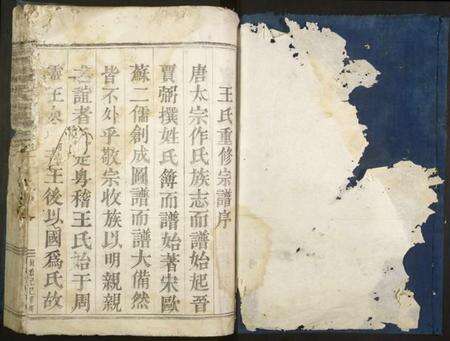 王氏重修宗譜序
唐太宗作氏族志而譜始起晉
賈弼撰姓氏簿而譜始著宋歐
蘇二儒創成圖譜而譜大備然
皆不外乎敬宗收族以明親親
之誼者 是粤稽王氏始于周
靈王 王後以國爲氏故